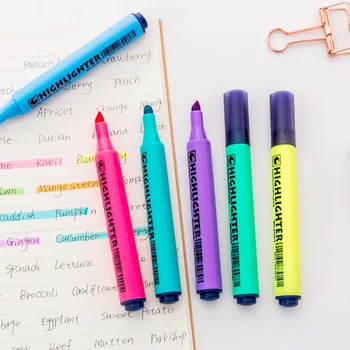 Passion
Cherry
Peach
Apricot Orange Mango
Durian Banana
Kiwi
Mangosteen
Radish Pumpkin
Ginger Cucumber
Spinach Lettuce
Broccoli Cauliflower
Cabbage Eggplant Sweet Potato
Beef Mutton Porkchop
HIGHLIGHTER
HIGHLIGHTER
HIGHLIGHTER
HIGHLIGHTER
HIGHLIGHTER
HIGHLIGHTER